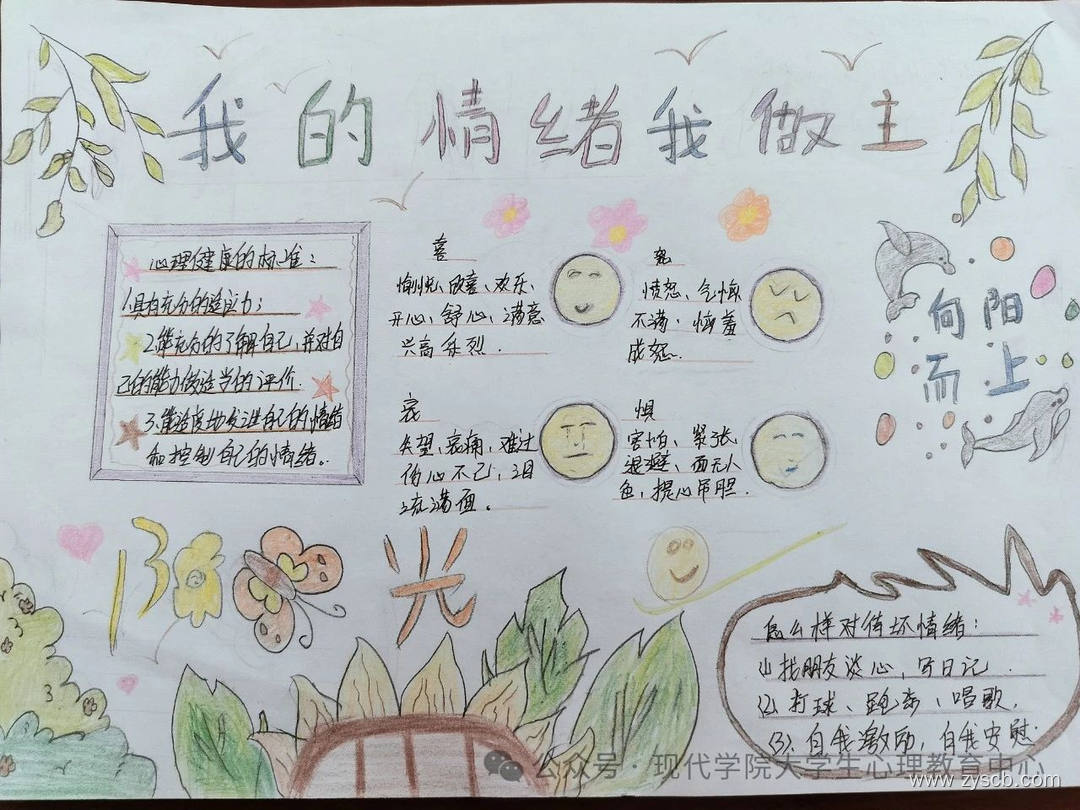 我的情绪我做主
心理健康的标准：
1.具有充分的适应力；
2.能充分的了解自己，并对自
己的能力做适当的评价.
3.能适度地发泄自己的情绪
和控制自己的情绪。
喜
愉悦、欣喜、欢乐、
开心、舒心、满意
兴高采烈.
怒
愤怒、气恼
不满、恼羞
成怒.
哀
失望、哀痛、难过
伤心不已、泪
流满面。
惧
害怕、紧张、
退避、面无人
色，提心吊胆.
向阳
而上
阳光
怎么样对待坏情绪：
(1)找朋友谈心，写日记.
(2)打球、跑步、唱歌.
(3)、自我激励，自我安慰.
公众号·现代学院大学生心理教育中心
www.zyscb.com